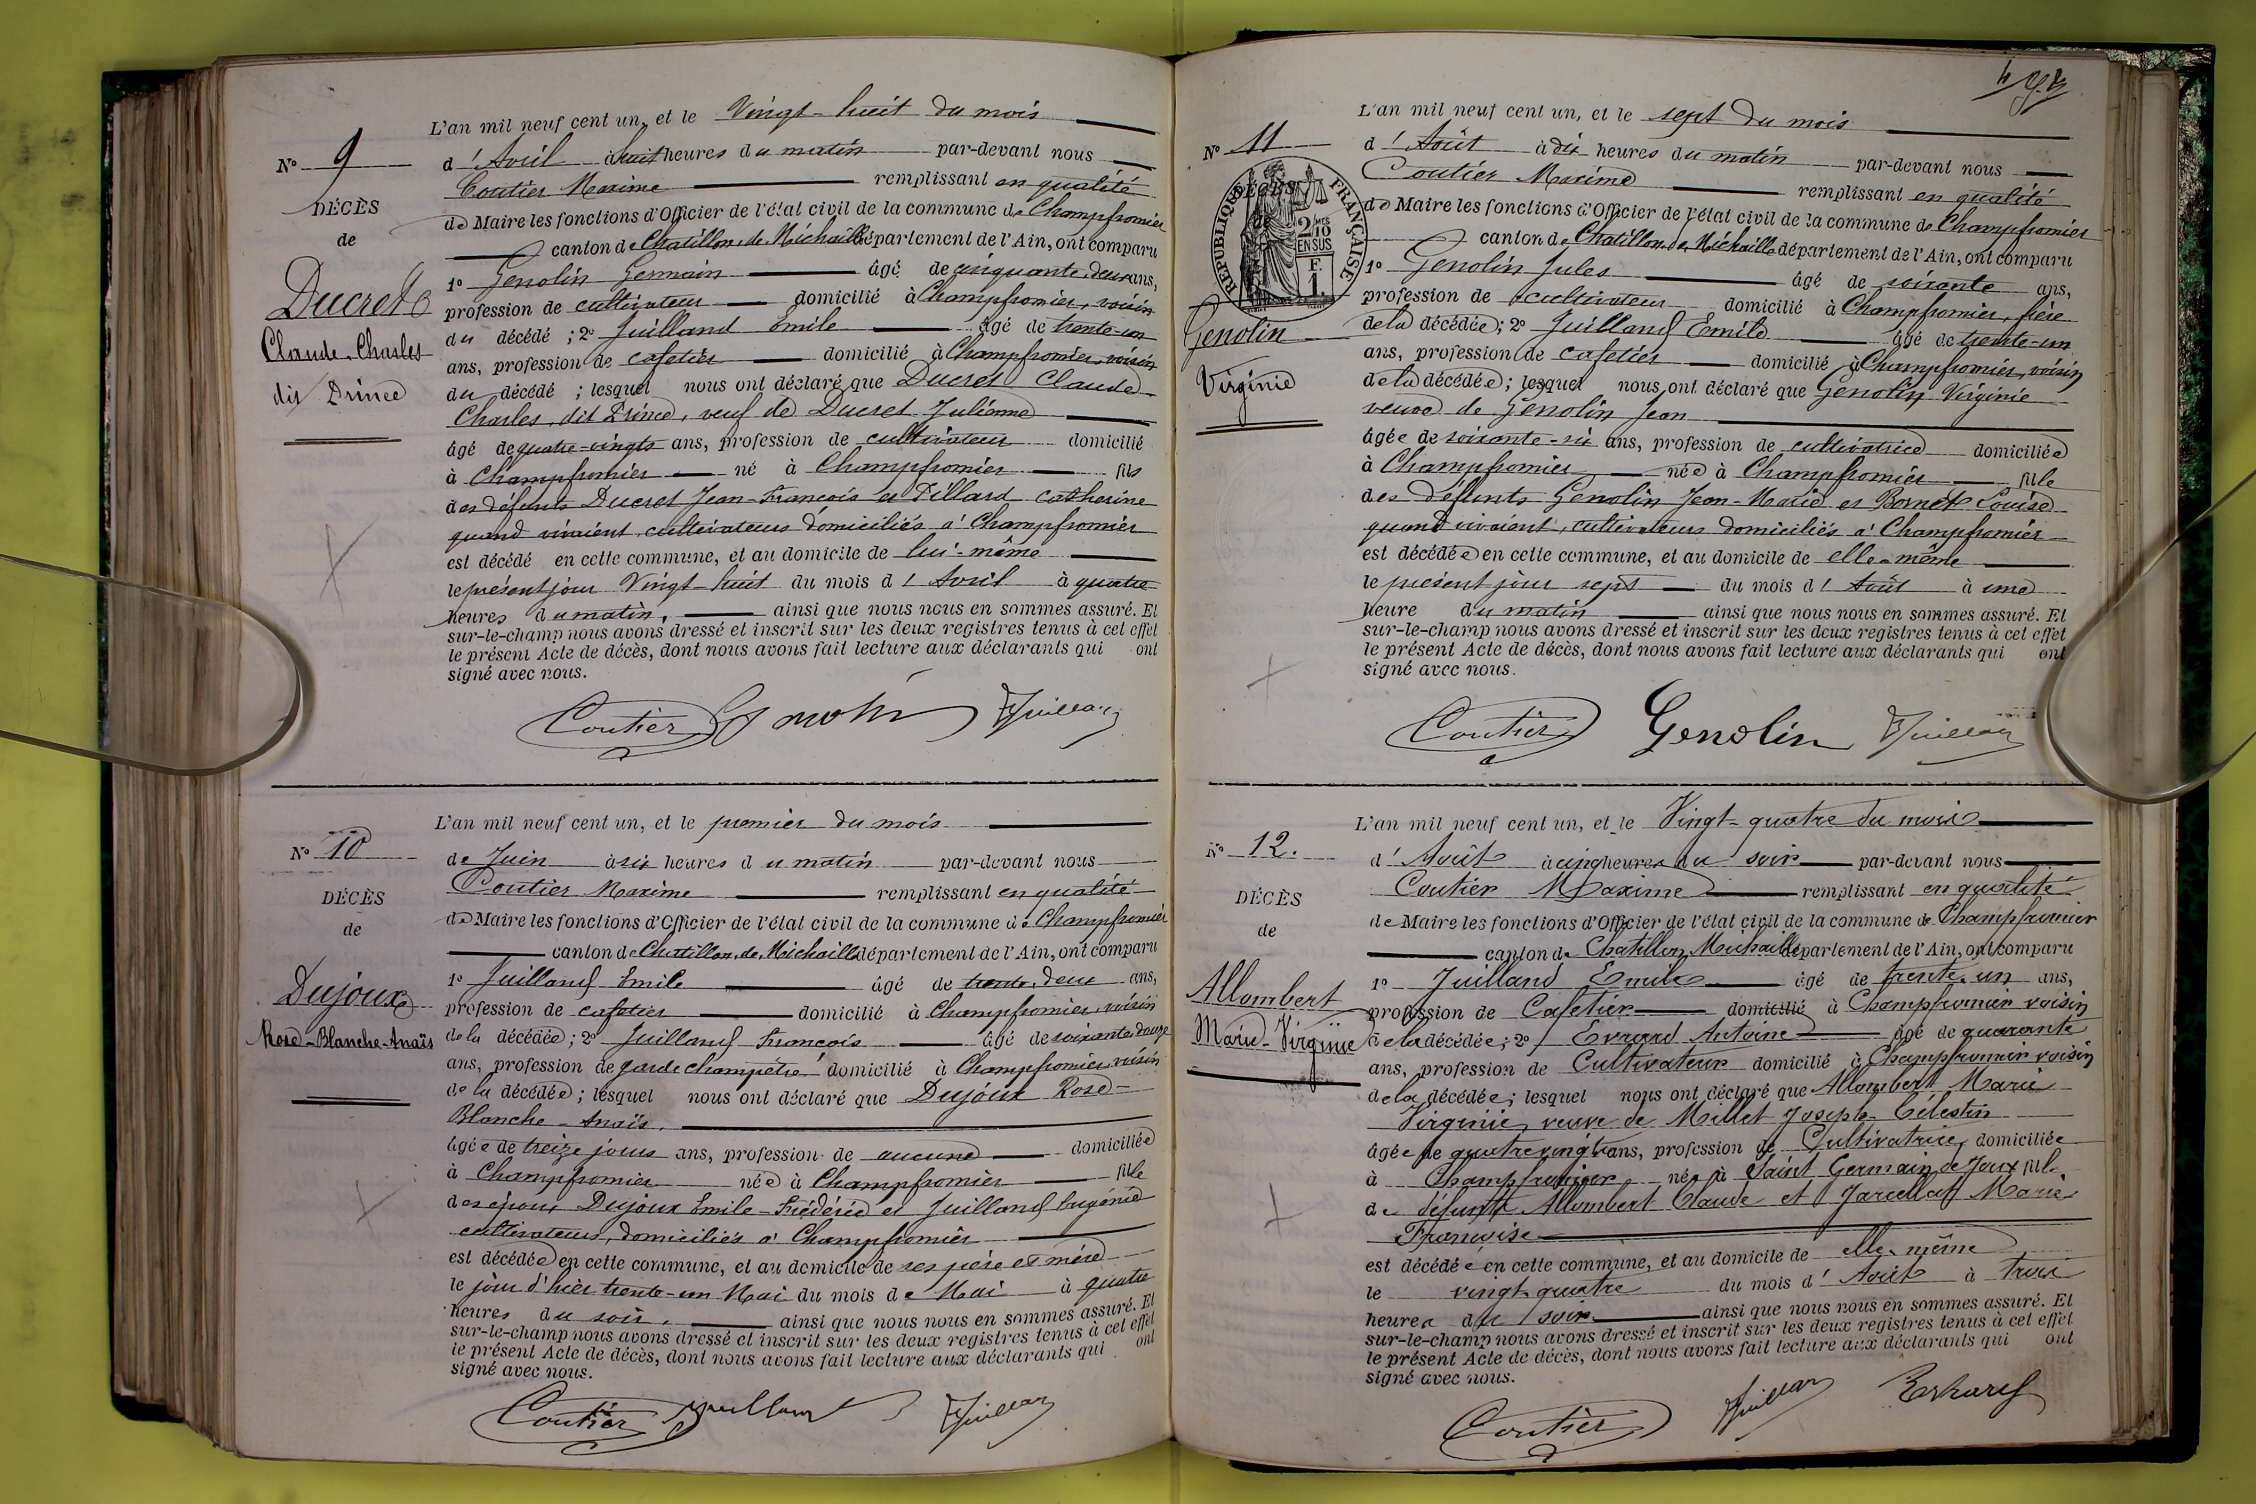 N° 9
DÉCÈS
de
Ducret
Claude-Charles
dit Prince
L'an mil neuf cent un, et le Vingt-huit du mois
d'Avril à huit heures du matin par-devant nous
Coutier Maxime remplissant en qualité
de Maire les fonctions d'Officier de l'état civil de la commune de Champfromier
canton de Chatillon-de-Michaille département de l'Ain, ont comparu
1° Genolin Germain âgé de cinquante-deux ans,
profession de cultivateur domicilié à Champfromier, voisin
du décédé ; 2° Juilland Emile âgé de trente-un
ans, profession de cafetier domicilié à Champfromier, voisin
du décédé ; lesquel nous ont déclaré que Ducret Claude
Charles, dit Prince, veuf de Ducret Julienne
âgé de quatre-vingts ans, profession de cultivateur domicilié
à Champfromier né à Champfromier fils
des défunts Ducret Jean-François et Pillard Catherine
quand vivaient cultivateurs domiciliés à Champfromier
est décédé en cette commune, et au domicile de lui-même
le présent jour Vingt-huit du mois d'Avril à quatre
heures du matin, ainsi que nous nous en sommes assuré. Et
sur-le-champ nous avons dressé et inscrit sur les deux registres tenus à cet effet
le présent Acte de décès, dont nous avons fait lecture aux déclarants qui ont
signé avec nous.
Coutier Genolin Juilland
N° 10
DÉCÈS
de
Dujoux
Rose-Blanche-Anaïs
L'an mil neuf cent un, et le premier du mois
de Juin à six heures du matin par-devant nous
Coutier Maxime remplissant en qualité
de Maire les fonctions d'Officier de l'état civil de la commune de Champfromier
canton de Chatillon-de-Michaille département de l'Ain, ont comparu
1° Juilland Emile âgé de trente-deux ans,
profession de cafetier domicilié à Champfromier, voisin
de la décédée ; 2° Juilland François âgé de soixante-douze
ans, profession de garde champêtre domicilié à Champfromier, voisin
de la décédée ; lesquel nous ont déclaré que Dujoux Rose-
Blanche-Anaïs,
âgée de treize jours ans, profession de aucune domiciliée
à Champfromier née à Champfromier fille
des époux Dujoux Emile-Frédéric et Juilland Eugénie
cultivateurs, domiciliés à Champfromier
est décédée en cette commune, et au domicile de ses père et mère
le jour d'hier trente-un Mai du mois de Mai à quatre
heures du soir, ainsi que nous nous en sommes assuré. Et
sur-le-champ nous avons dressé et inscrit sur les deux registres tenus à cet effet
le présent Acte de décès, dont nous avons fait lecture aux déclarants qui ont
signé avec nous.
Coutier Juilland Juilland
N° 11
DÉCÈS
RÉPUBLIQUE FRANÇAISE
2/10 EN SUS
F. 1.
Genolin
Virginie
L'an mil neuf cent un, et le sept du mois
d'Août à dix heures du matin par-devant nous
Coutier Maxime remplissant en qualité
de Maire les fonctions d'Officier de l'état civil de la commune de Champfromier
canton de Chatillon-de-Michaille département de l'Ain, ont comparu
1° Genolin Jules âgé de soixante ans,
profession de cultivateur domicilié à Champfromier, frère
de la décédée ; 2° Juilland Emile âgé de trente-un
ans, profession de cafetier domicilié à Champfromier, voisin
de la décédée ; lesquel nous ont déclaré que Genolin Virginie
veuve de Genolin Jean
âgée de soixante-six ans, profession de cultivatrice domiciliée
à Champfromier née à Champfromier fille
des défunts Genolin Jean-Marie et Bornet Louise
quand vivaient, cultivateurs domiciliés à Champfromier
est décédée en cette commune, et au domicile de elle-même
le présent jour sept du mois d'Août à une
heure du matin ainsi que nous nous en sommes assuré. Et
sur-le-champ nous avons dressé et inscrit sur les deux registres tenus à cet effet
le présent Acte de décès, dont nous avons fait lecture aux déclarants qui ont
signé avec nous.
Coutier Genolin Juilland
N° 12.
DÉCÈS
de
Allombert
Marie-Virginie
L'an mil neuf cent un, et le Vingt-quatre du mois
d'Août à cinq heures du soir par-devant nous
Coutier Maxime remplissant en qualité
de Maire les fonctions d'Officier de l'état civil de la commune de Champfromier
canton de Chatillon Michaille département de l'Ain, ont comparu
1° Juilland Emile âgé de trente-un ans,
profession de Cafetier domicilié à Champfromier voisin
de la décédée ; 2° Evrard Antoine âgé de quarante
ans, profession de Cultivateur domicilié à Champfromier voisin
de la décédée ; lesquel nous ont déclaré que Allombert Marie
Virginie, veuve de Millet Joseph-Célestin
âgée de quatre vingt ans, profession de Cultivatrice, domiciliée
à Champfromier née à Saint Germain de Joux fille
de défunts Allombert Claude et Jarcellat Marie
Françoise
est décédée en cette commune, et au domicile de elle-même
le vingt quatre du mois d'Août à trois
heures du soir ainsi que nous nous en sommes assuré. Et
sur-le-champ nous avons dressé et inscrit sur les deux registres tenus à cet effet
le présent Acte de décès, dont nous avons fait lecture aux déclarants qui ont
signé avec nous.
Coutier Juilland Evrard